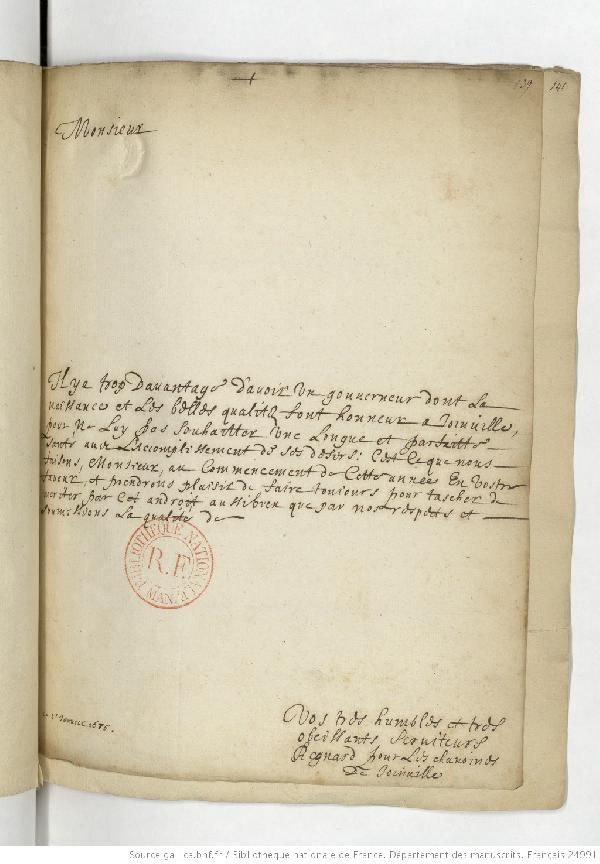 139 141
Monsieur
Il y a trop Davantage D'avoir Un gouverneur dont La
naissance et Les belles qualités font honneur a Joinville,
pour Ne Luy pas Souhaitter Une Longue et parfaitte
Santé avec L'accomplissement de ses desirs: C'est Ce que nous
faisons, Monsieur, au Commencement de Cette année En Vostre
faveur, et prendrons plaisir de faire toujours pour tascher de
meriter par Cet androit aussibien que par nos respects et
soumissions La qualité de
BIBLIOTHEQUE NATIONALE MANUS.
R.F.
Janvier 1676.
Vos tres humbles et tres
obeissants Serviteurs
Regnard pour Les chanoines
De Joinville
Source gallica.bnf.fr / Bibliothèque nationale de France. Département des manuscrits. Français 24991